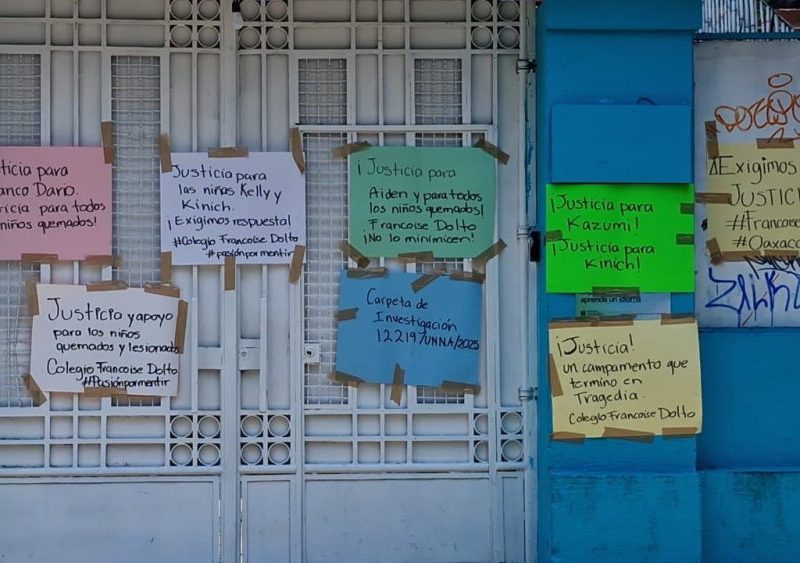 ticia para
anco Dario.
ticia para todos
niños quemados!
Justicia para
las niñas Kelly y
Kinich.
¡Exigimos respuesta!
#Colegio Francoise Dolto
#pasionpormentir
¡Justicia para
Aiden y para todos
los niños quemados!
Francoise Dolto
¡No lo minimicen!
¡Justicia para
Kazumi!
¡Justicia para
Kinich!
Exigimos
JUSTICI
#Francoise
#Oaxaca
Justicia y apoyo
para los niños
quemados y lesionados
Colegio Francoise Dolto
#Pasiónpormentir
Carpeta de
Investigación
12219/UNNA/2025
aprende un idioma
¡Justicia!
un campamento que
termino en
Tragedia.
Colegio Francoise Dolto